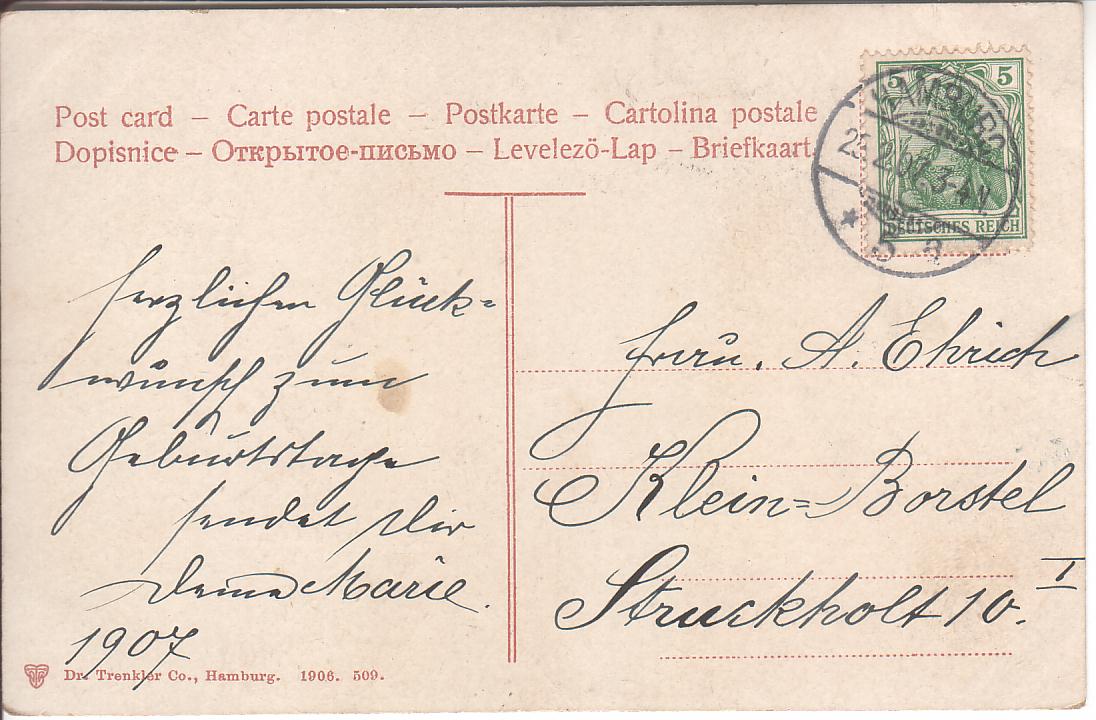 Post card – Carte postale – Postkarte – Cartolina postale
Dopisnice – Открытое-письмо – Levelezö-Lap – Briefkaart.
5 5
HAMBURG
2.07. 3-4 N.
* 5 a
DEUTSCHES REICH
Herzlichen Glück-
wunsch zum
Geburtstage
sendet Dir
Deine Marie.
1907
Frau. A. Ehrich
Klein=Borstel
Struckholt 10. I
Dr. Trenkler Co., Hamburg. 1906. 509.